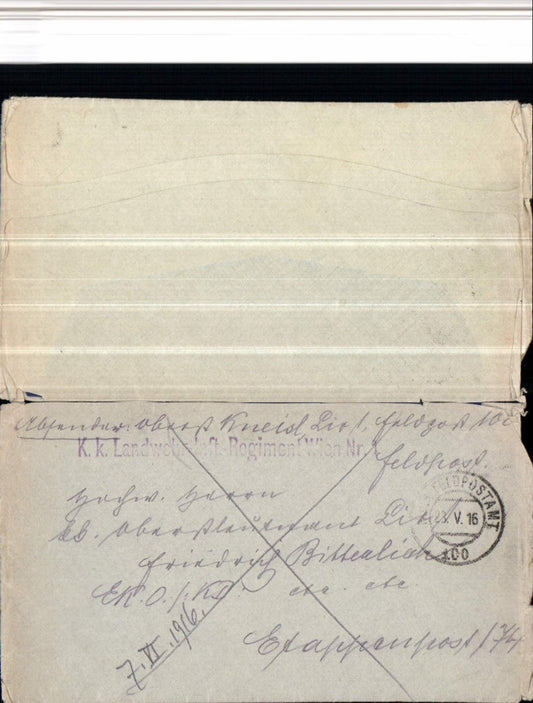 Absender: Oberst Kneisl Dir 1, Feldpost 100
K. k. Landwehr-Inft.-Regiment Wien Nr. 1
Feldpost.
FELDPOSTAMT
23. V. 16
100
Hochw. Herrn
Oberstleutnant
Friedrich
etc. etc.
7. VI. 1916.
Etappenpost 174